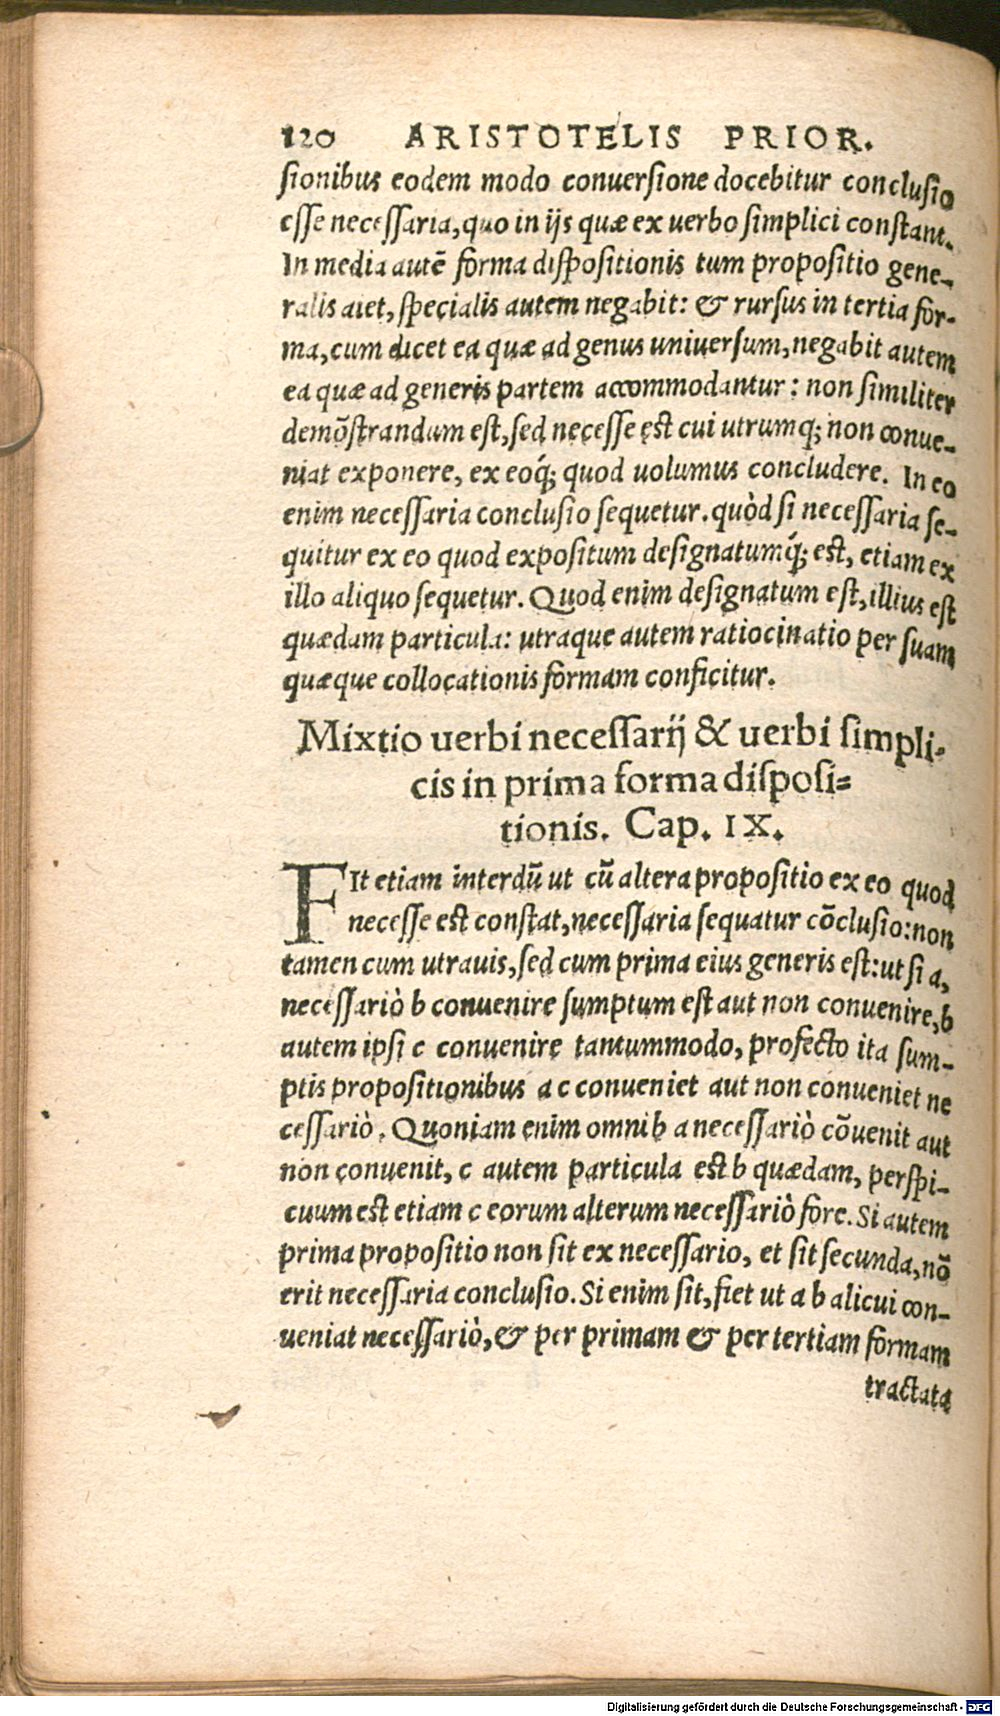 120 ARISTOTELIS PRIOR.
sionibus eodem modo conuersione docebitur conclusio
esse necessaria, quo in ijs quæ ex uerbo simplici constant.
In media autē forma dispositionis tum propositio gene-
ralis aiet, specialis autem negabit: & rursus in tertia for-
ma, cum dicet ea quæ ad genus uniuersum, negabit autem
ea quæ ad generis partem accommodantur: non similiter
demōstrandum est, sed necesse est cui utrumq; non conue-
niat exponere, ex eoq́; quod uolumus concludere. In eo
enim necessaria conclusio sequetur. quòd si necessaria se-
quitur ex eo quod expositum designatumq́; est, etiam ex
illo aliquo sequetur. Quod enim designatum est, illius est
quædam particula: utraque autem ratiocinatio per suam
quæque collocationis formam conficitur.
Mixtio uerbi necessarij & uerbi simpli-
cis in prima forma disposi-
tionis. Cap. IX.
FIt etiam interdū ut cū altera propositio ex eo quod
necesse est constat, necessaria sequatur cōclusio: non
tamen cum utrauis, sed cum prima eius generis est: ut si a,
necessariò b conuenire sumptum est aut non conuenire, b
autem ipsi c conuenire tantummodo, profecto ita sum-
ptis propositionibus a c conueniet aut non conueniet ne
cessariò. Quoniam enim omni b a necessariò cōuenit aut
non conuenit, c autem particula est b quædam, perspi-
cuum est etiam c eorum alterum necessariò fore. Si autem
prima propositio non sit ex necessario, et sit secunda, nō
erit necessaria conclusio. Si enim sit, fiet ut a b alicui con-
ueniat necessariò, & per primam & per tertiam formam
tractata
Digitalisierung gefördert durch die Deutsche Forschungsgemeinschaft - DFG